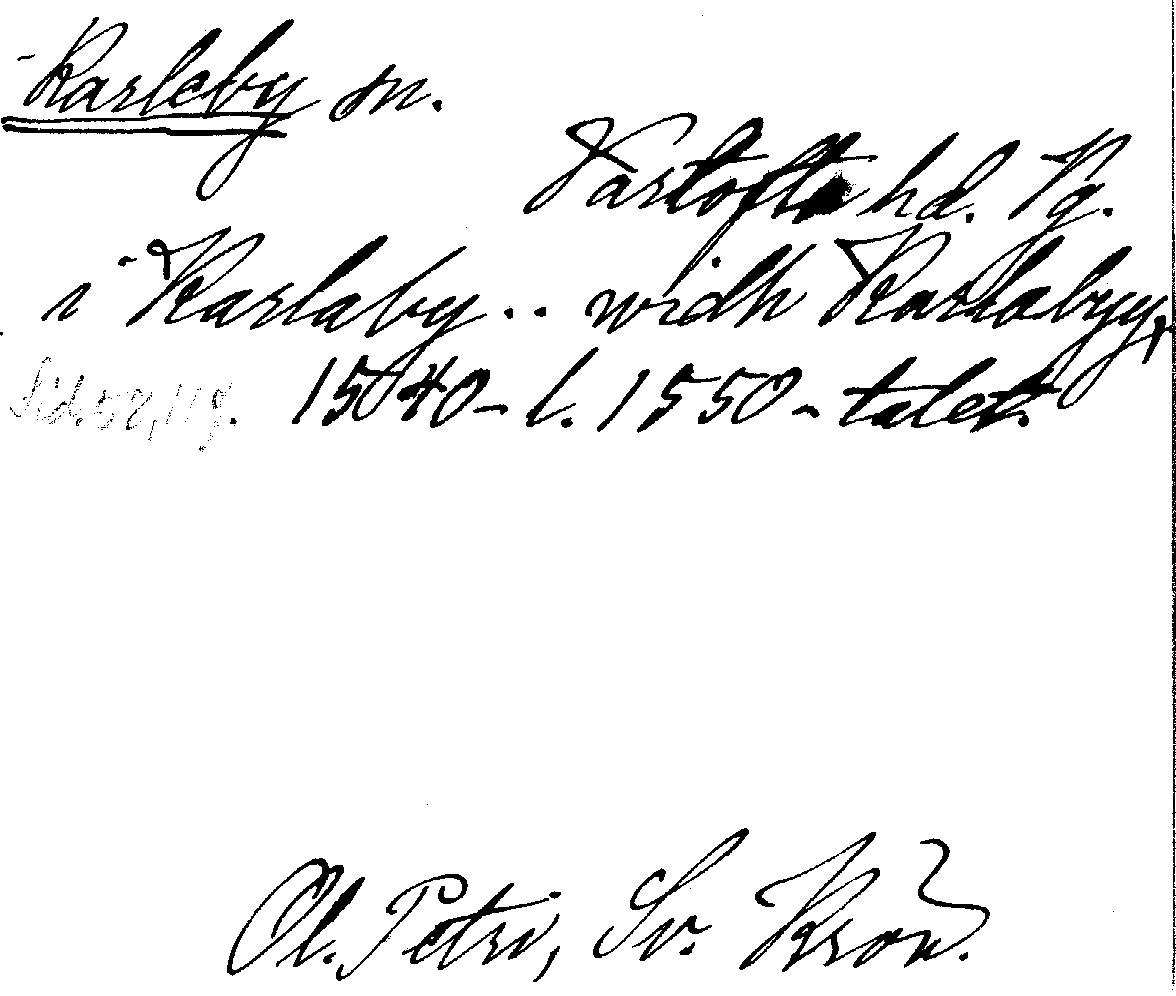 Karleby sn.
Vartofta hd. Vg.
i Karlaby .. widh Karlabyy,
Sid. 52, 119. 1540- l. 1550-talet.
Ol. Petri, Sv. Krön.